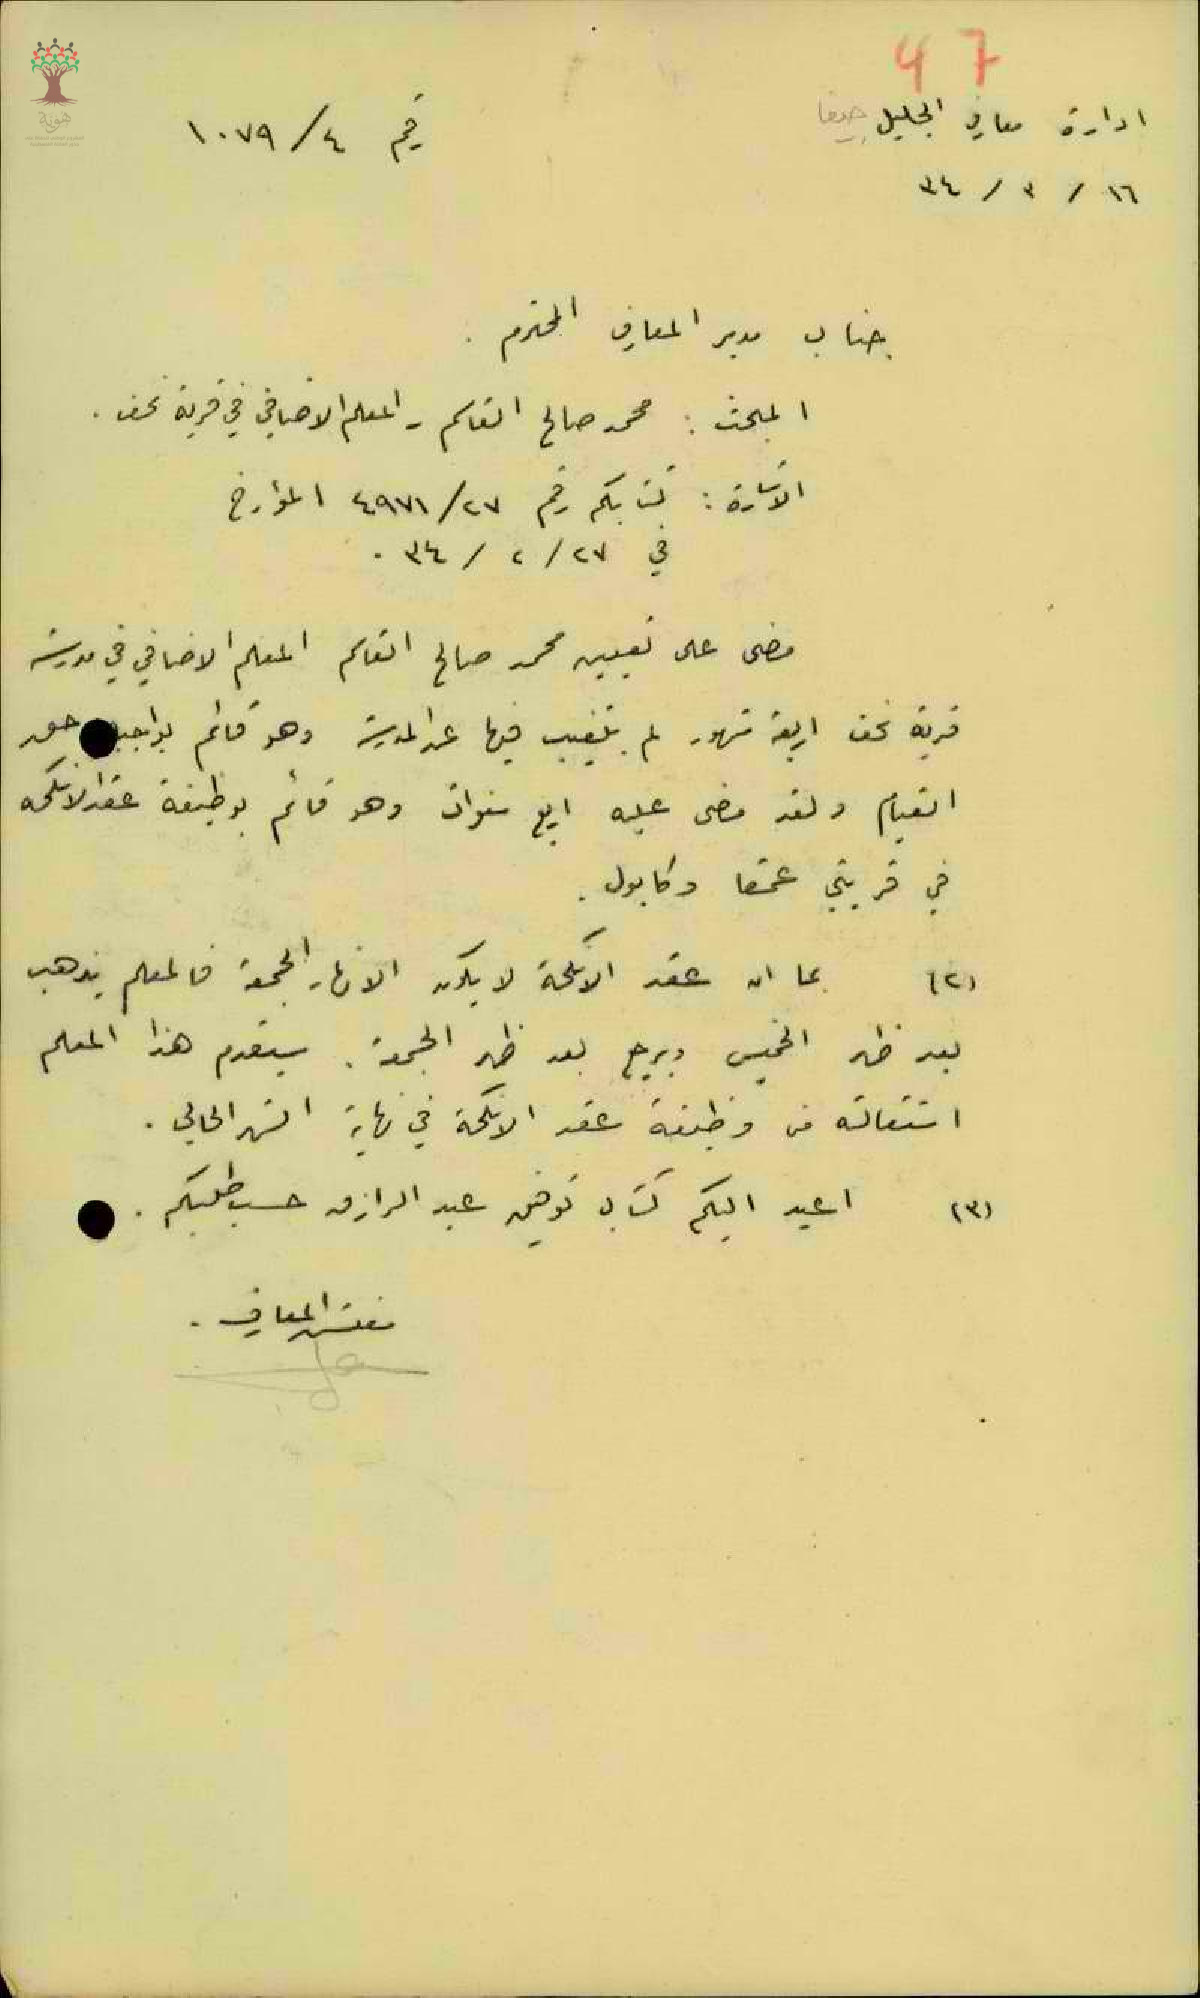 47
ادارة معارف الجليل حيفا
١٦ / ٣ / ٣٤
رقم ٤/١٠٧٩
هوية
جناب مدير المعارف المحترم .
المبحث : محمد صالح القاسم - المعلم الاضافي في قرية نحف .
الاشارة : كتابكم رقم ٢٧/٤٩٧١ المؤارخ
في ٢٧ / ٢ / ٣٤ .
مضى على تعيين محمد صالح القاسم المعلم الاضافي في مدرسة
قرية نحف اربعة شهور لم يتغيب فيها عن المدرسة وهو قائم بواجبه حق
القيام ولقد مضى عليه اربع سنوات وهو قائم بوظيفة عقد الانكحه
في قريتي عمقا وكابول .
(٢) بما ان عقد الانكحة لا يكون الا نهار الجمعة فالمعلم يذهب
بعد ظهر الخميس ويرجع بعد ظهر الجمعة . سيقدم هذا المعلم
استقالته من وظيفة عقد الانكحة في نهاية الشهر الحالي .
(٣) اعيد اليكم كتاب توفيق عبد الرازق حسب طلبكم .
مفتش المعارف .